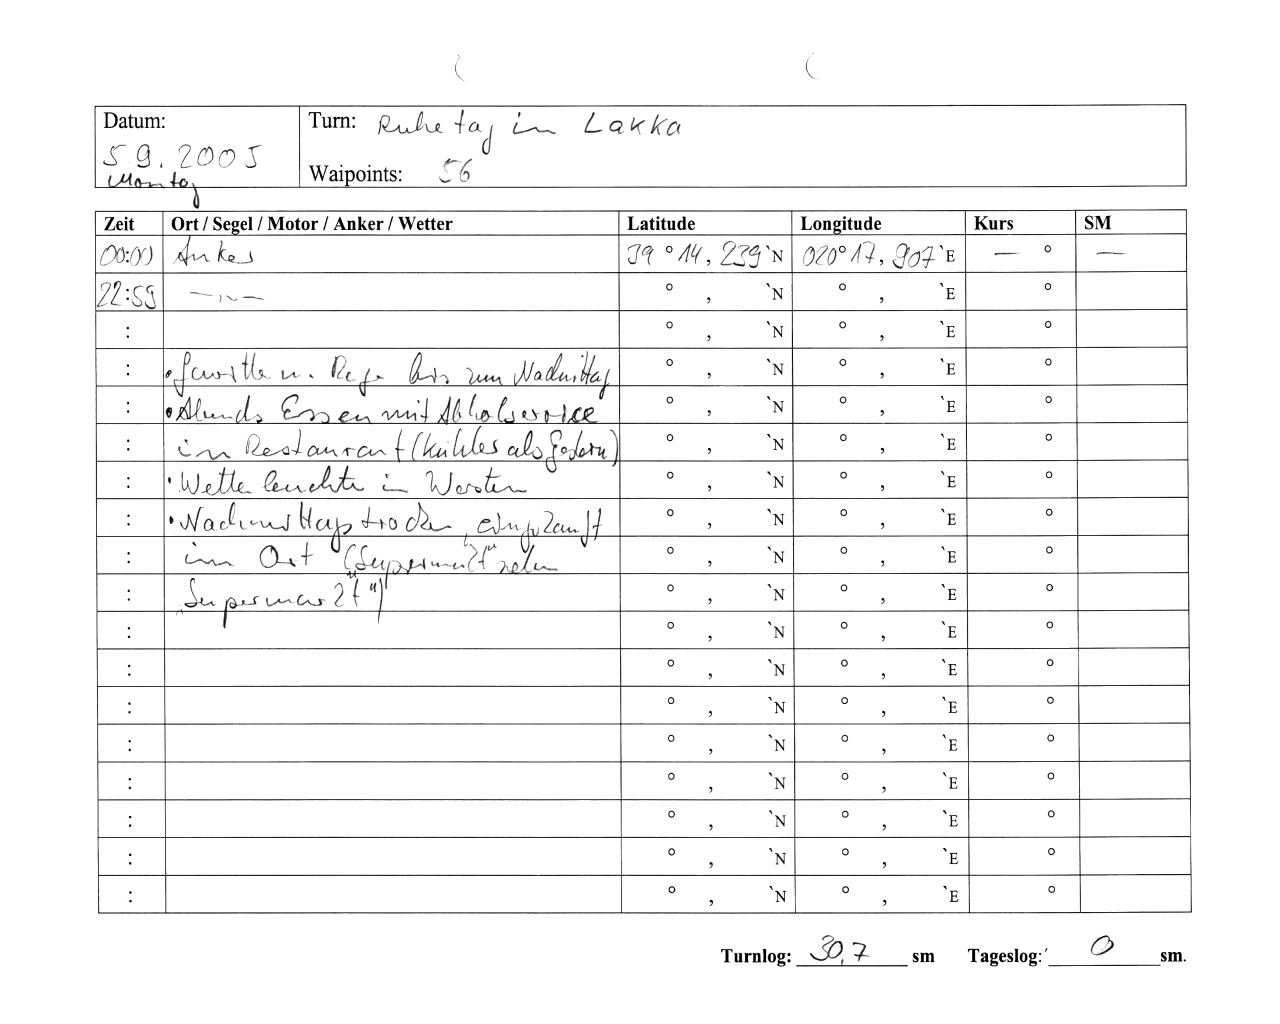 Datum: Turn: Ruhetag in Lakka
5.9.2005
Montag Waipoints: 56
Zeit Ort / Segel / Motor / Anker / Wetter Latitude Longitude Kurs SM
00:00 Anker 39 ° 14, 239 `N 020° 17, 907 `E — ° —
22:59 — " — ° , `N ° , `E °
: ° , `N ° , `E °
: • Gewitter u. Rege bis zum Nachmittag ° , `N ° , `E °
: • Abends Essen mit Abholservice ° , `N ° , `E °
: im Restaurant (kühles als gestern) ° , `N ° , `E °
: • Wetterleuchte im Westen ° , `N ° , `E °
: • Nachmittags trocken, eingekauft ° , `N ° , `E °
: im Ort ("Supermarkt" ° , `N ° , `E °
: "Supermarkt") ° , `N ° , `E °
: ° , `N ° , `E °
: ° , `N ° , `E °
: ° , `N ° , `E °
: ° , `N ° , `E °
: ° , `N ° , `E °
: ° , `N ° , `E °
: ° , `N ° , `E °
: ° , `N ° , `E °
Turnlog: 30,7 sm Tageslog: 0 sm.